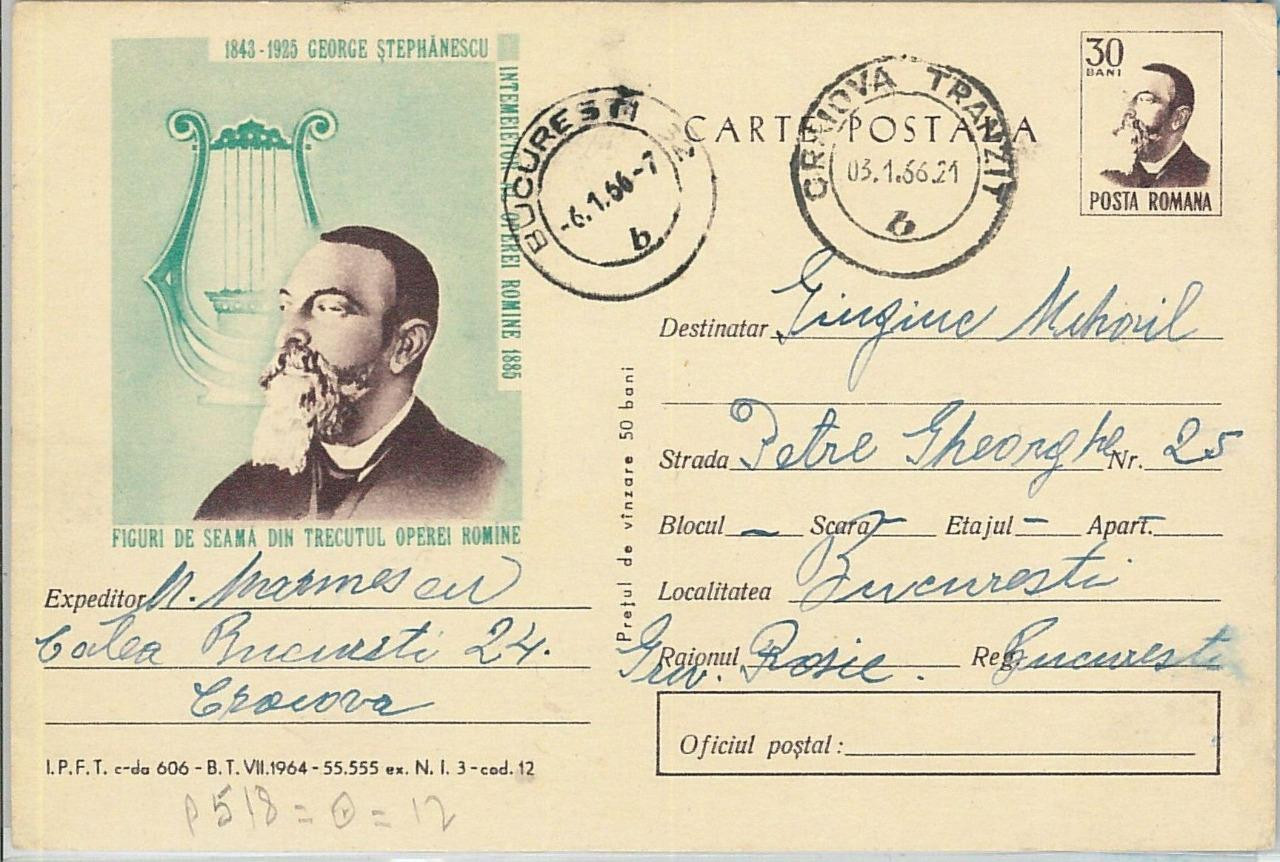 1843-1925 GEORGE ȘTEPHĂNESCU
INTEMEIETOR AL OPEREI ROMINE 1885
FIGURI DE SEAMĂ DIN TRECUTUL OPEREI ROMINE
BUCURESTI
-6.1.66-7
b
CARTE POSTALA
CRAIOVA TRANZIT
03.1.66.21
b
30
BANI
POSTA ROMANA
Destinatar Mihail
Strada Petre Gheorghe Nr. 25
Blocul - Scara - Etajul - Apart.
Localitatea Bucuresti
Raionul Griv. Rosie. Reg. Bucuresti
Oficiul poștal:
Prețul de vînzare 50 bani
Expeditor M.
Calea Bucuresti 24.
Craiova
I.P.F.T. c-da 606 - B.T. VII.1964 - 55.555 ex. N. I. 3-cod. 12